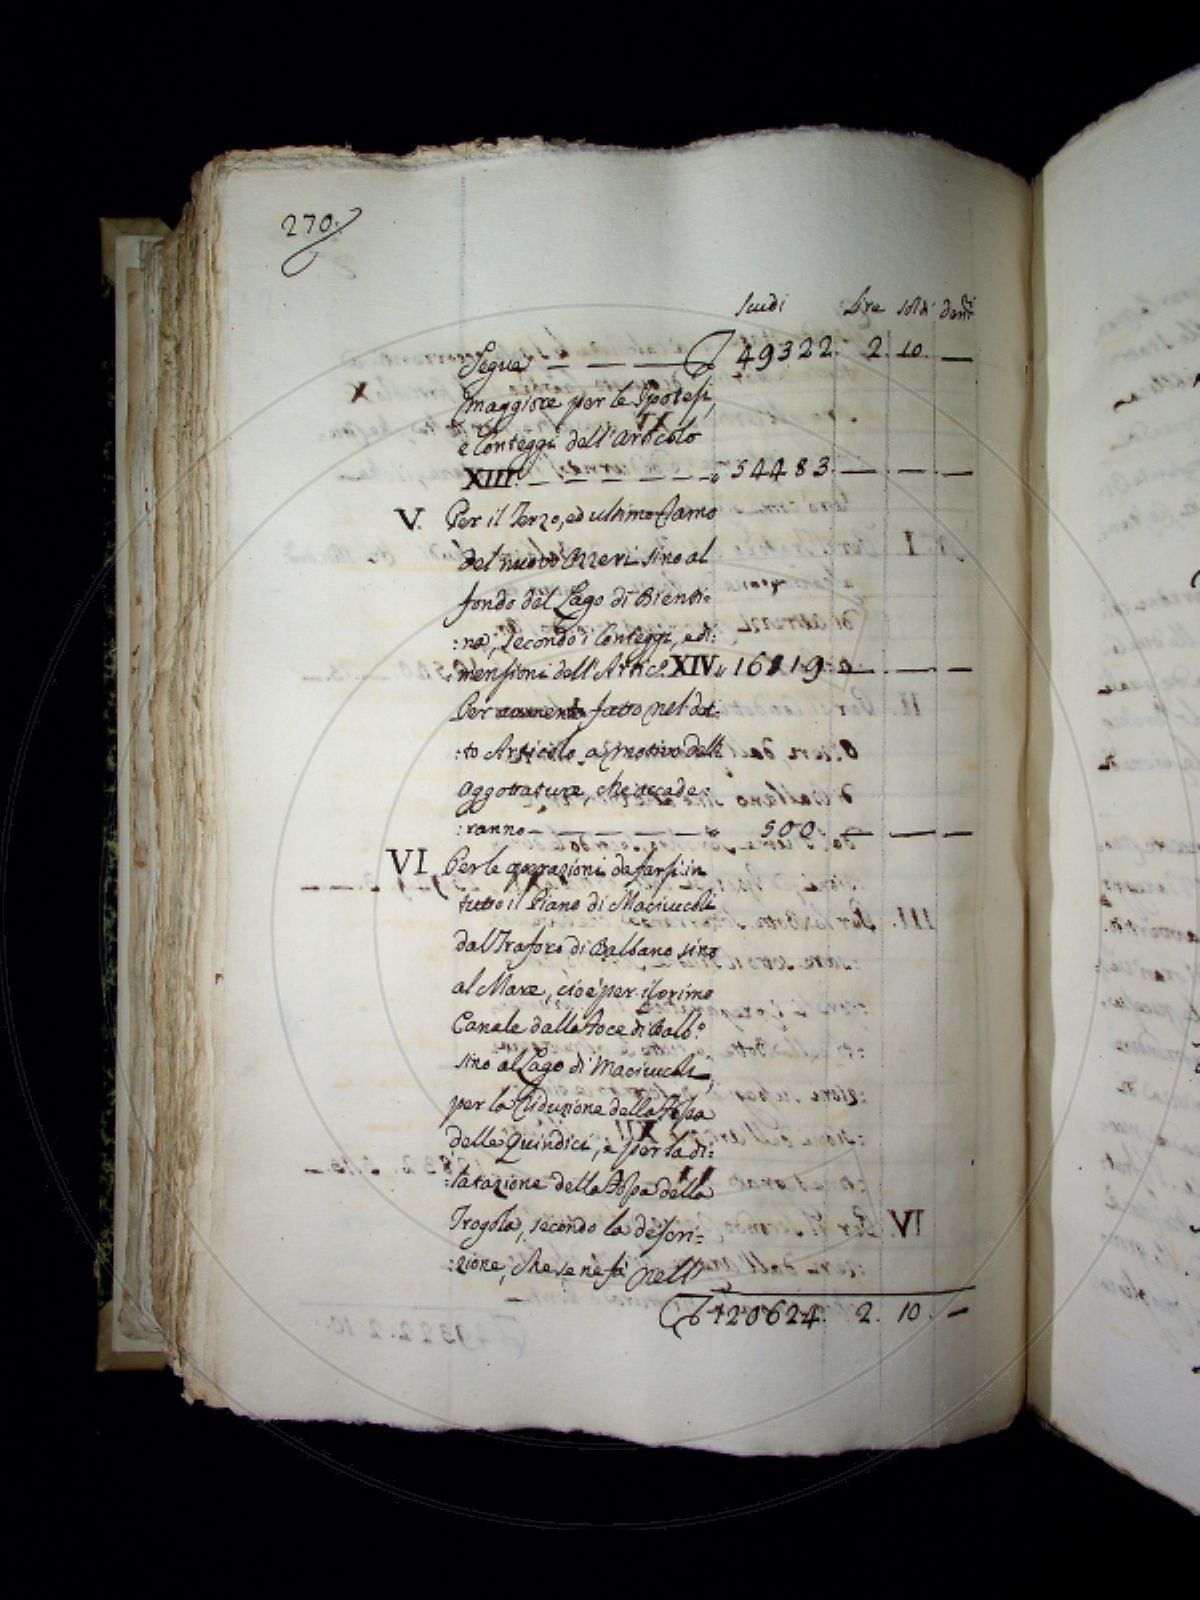 270.
Scudi Lire soldi den:ri
Segue — — — 49322. 2. 10. —
maggiore per le Ipotesi,
e Conteggi dell'Articolo
XIII. — — — — — „ 54483. — — —
V. Per il Terzo, ed ultimo Ramo
del nuovo Ozzeri sino al
fondo del Lago di Bienti=
:na, secondo i Conteggi, e di:
:mensioni dell'Artic.o XIV „ 16319. — — —
Per aumento fatto nel det:
:to Articolo a motivo delle
Aggottature, che accade:
:ranno — — — — — „ 500. — — —
VI. Per le operazioni da farsi in
tutto il Piano di Maciuccoli
dal Traforo di Balbano sino
al Mare, cioè per il primo
Canale dalla Foce di Balb.o
sino al Lago di Maciuccoli,
per la Riduzione della Fossa
delle Quindici, e per la di:
:latazione della Fossa della
Trogola, secondo la descri=
:zione, che se ne fà nell'
120624. 2. 10. —